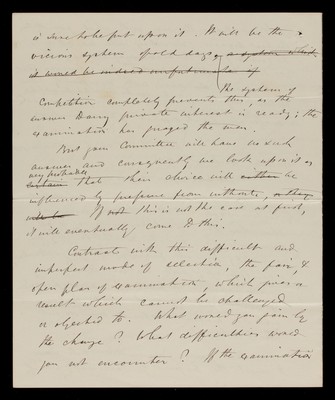 is sure to be put upon it. It will be the
vicious system of old days, a system which
it would be indeed unfortunate if
The system of
Competition completely prevents this, as the
answer to any private interest is ready; the
examination has judged the men.
But your Committee will have no such
answer and consequently we look upon it as
very probable
certain that their choice will either be
influenced by pressure from without, or they
will be If not this is not the case at first,
it will eventually come to this.
Contrast with this difficult and
imperfect mode of selection, the fair, &
open plan of examination, which gives a
result which cannot be challenged
or objected to. What would you gain by
the change? What difficulties would
you not encounter? If the examination